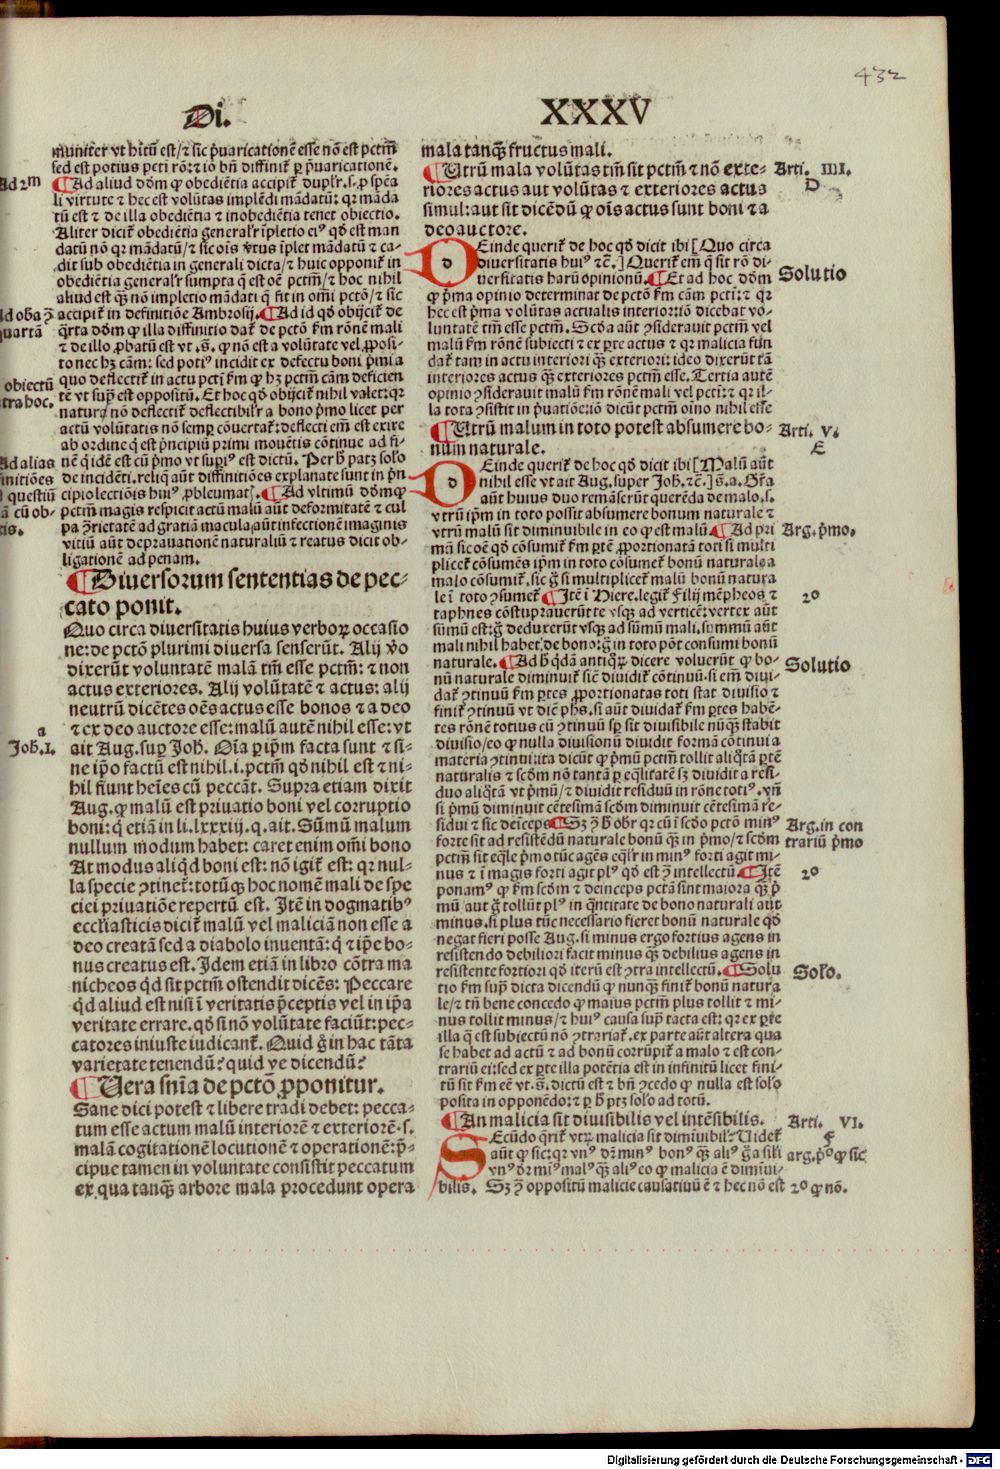 432
Di.
XXXV
muniter vt hr̄tū est/⁊ sic p̄uaricationē esse nō est pctm̄
sed est potius pcti rō:⁊ iō bn̄ diffinit᷑ ꝑ p̄uaricationē.
Ad 2m
¶Ad aliud dōm ꝙ obediētia accipit᷑ duplr̄.s.ꝓ spēa
li virtute ⁊ hec est volūtas implēdi mādatū: qꝛ māda
tū est ⁊ de illa obediētia ⁊ inobediētia tenet obiectio.
Aliter dicit᷑ obediētia generalr̄ īpletio eiꝰ qd̄ est man
datū nō qꝛ mādatū/⁊ sic oīs v̄tus īplet mādatū ⁊ ca⸗
dit sub obediētia in generali dicta/⁊ huic opponit᷑ in
obediētia generalr̄ sumpta q̄ est oē pctm̄/⁊ hoc nihil
aliud est q̄ꝫ nō impletio mādati q̄ fit in om̄i pctō/⁊ sic
accipit᷑ in definitiōe Ambrosij. ¶Ad id qd̄ obijcit᷑ de
Ad oba ꝯ
quartā
q̄rta dōm ꝙ illa diffinitio dat᷑ de pctō ẜm rōnē mali
⁊ de illo ꝓbatū est vt .s. ꝙ nō est a volūtate vel ꝓposi⸗
to nec hꝫ cām: sed potiꝰ incidit ex defectu boni p̄mi a
quo deflectit᷑ in actu pcti ẜm ꝙ hꝫ pctm̄ cām deficien
te vt sup̄ est oppositū. Et hoc qd̄ obijcit᷑ nihil valet: qꝛ
obiectū
tra hoc.
natura nō deflectit᷑ deflectibilr̄ a bono p̄mo licet per
actū volūtatis nō semꝑ cōuertat᷑: deflecti em̄ est exire
ab ordine q̄ est p̄ncipiū primi mouētis cōtinue ad fi⸗
nē q̄ idē est cū p̄mo vt superiꝰ est dictū. Per h̄ patꝫ solo
Ad alias
initiōes
de incidēti. reliq̄ aūt diffinitiōes explanate sunt in p̄n
cipio lectiōis huiꝰ ꝓbleumatꝭ. ¶Ad vltimū dōm ꝙ
questiū
ā cū ob⸗
tis.
pctm̄ magis respicit actū malū aūt deformitatē ⁊ cul
pa ꝯrietatē ad gratiā macula aūt infectionē imaginis
vitiū aūt deprauationē naturaliū ⁊ reatus dicit ob⸗
ligationē ad penam.
¶Diuersorum sententias de pec⸗
cato ponit.
Quo circa diuersitatis huius verboꝝ occasio
ne: de pctō plurimi diuersa senserūt. Alij v̄o
dixerūt voluntatē malā tm̄ esse pctm̄: ⁊ non
actus exteriores. Alij volūtatē ⁊ actus: alij
neutrū dicētes oēs actus esse bonos ⁊ a deo
⁊ ex deo auctore esse: malū autē nihil esse: vt
a
Joh̄. I.
ait Aug. suꝑ Joh̄. Oīa ꝑ ip̄m facta sunt ⁊ si⸗
ne ip̄o factū est nihil.i. pctm̄ qd̄ nihil est ⁊ ni⸗
hil fiunt hoīes cū peccāt. Supra etiam dixit
Aug. ꝙ malū est priuatio boni vel corruptio
boni: q̄ etiā in li. lxxxiij. q. ait. Sūmū malum
nullum modum habet: caret enim om̄i bono
At modus aliqd̄ boni est: nō igit᷑ est: qꝛ nul⸗
la specie ꝯtinet᷑: totūqꝫ hoc nomē mali de spe
ciei priuatiōe repertū est. Itē in dogmatibꝰ
ecclīasticis dicit᷑ malū vel maliciā non esse a
deo creatā sed a diabolo inuentā: q̄ ⁊ ip̄e bo⸗
nus creatus est. Idem etiā in libro cōtra ma
nicheos qd̄ sit pctm̄ ostendit dicēs: Peccare
qd̄ aliud est nisi ī veritatis p̄ceptis vel in ip̄a
veritate errare. qd̄ si nō volūtate faciūt: pec⸗
catores iniuste iudicant᷑. Quid ḡ in hac tāta
varietate tenendū? quid ve dicendū?
¶Uera sn̄ia de pctō ꝓponitur.
Sane dici potest ⁊ libere tradi debet: pecca⸗
tum esse actum malū interiorē ⁊ exteriorē.s.
malā cogitationē locutionē ⁊ operationē: p̄⸗
cipue tamen in voluntate consistit peccatum
ex qua tanq̄ꝫ arbore mala procedunt opera
mala tanq̄ꝫ fructus mali.
¶Utrū mala volūtas tm̄ sit pctm̄ ⁊ nō exte⸗
Arti. IIII.
D
riores actus aut volūtas ⁊ exteriores actus
simul: aut sit dicēdū ꝙ oīs actus sunt boni ⁊ a
deo auctore.
DEinde querit᷑ de hoc qd̄ dicit ibi [Quo circa
diuersitatis huiꝰ ⁊c̄.] Querit᷑ em̄ q̄ sit rō di⸗
uersitatis harū opinionū. ¶Et ad hoc dōm
Solutio
ꝙ p̄ma opinio determinat de pctō ẜm cām pcti: ⁊ qꝛ
hec est p̄ma volūtas actualis interior: iō dicebat vo⸗
luntatē tm̄ esse pctm̄. Scd̄a aūt ꝯsiderauit pctm̄ vel
malū ẜm rōnē subiecti ⁊ ex ꝑte actus ⁊ qꝛ malicia fūn
dat᷑ tam in actu interiori q̄ꝫ exteriori: ideo dixerūt tā
interiores actus q̄ꝫ exteriores pctm̄ esse. Tertia autē
opinio ꝯsiderauit malū ẜm rōnē mali vel pcti: ⁊ qꝛ il⸗
la tota ꝯsistit in p̄uatiōe: iō dicūt pctm̄ oīno nihil esse
¶Utrū malum in toto potest absumere bo⸗
Arti. V.
E
num naturale.
DEinde querit᷑ de hoc qd̄ dicit ibi [Malū aūt
nihil esse vt ait Aug. super Joh̄. ⁊c̄.] .s. a. Gr̄a
aūt huius duo remāserūt querēda de malo.s.
vtrū ip̄m in toto possit absumere bonum naturale ⁊
vtrū malū sit diminuibile in eo ꝙ est malū ¶Ad pri
Arg. p̄mo.
mā sic oē qd̄ cōsumit᷑ ẜm ꝑtē ꝓportionatā toti si multi
plicet᷑ cōsumēs ip̄m in toto cōsumet᷑ bonū naturale a
malo cōsumit᷑. sic ḡ si multiplicet᷑ malū bonū natura
le ī toto ꝯsumet᷑ ¶Itē ī Hiere. legit᷑ Filij mēpheos ⁊
2o
taphnes cōstuprauerūt te vsqꝫ ad verticē: vertex aūt
sūmū est: ḡ deduxerūt vsqꝫ ad sūmū mali. summū aūt
mali nihil habet de bono: ḡ in toto pōt consumi bonū
naturale. ¶Ad h̄ q̄dā antiqꝝ dicere voluerūt ꝙ bo⸗
Solutio
nū naturale diminuit᷑ sic̄ diuidit᷑ cōtinuū. si em̄ diui⸗
dat᷑ ꝯtinuū ẜm ꝑtes ꝓportionatas toti stat diuisio ⁊
finit᷑ ꝯtinuū vt dic̄ ph̄s. si aūt diuidat᷑ ẜm ꝑtes habē⸗
tes rōnē totius cū ꝯtinuū sp̄ sit diuisibile nūq̄ꝫ stabit
diuisio/eo ꝙ nulla diuisionū diuidit formā cōtinui a
materia ꝯtinui: ita dicūt ꝙ p̄mū pctm̄ tollit aliq̄tā ꝑtē
naturalis ⁊ scd̄m nō tantā ꝑ eq̄litatē sꝫ diuidit a resi⸗
duo aliq̄tā vt p̄mū/⁊ diuidit residuū in rōne totiꝰ. vn̄
si p̄mū diminuit cētesimā scd̄m diminuit cētesimā re⸗
sidui ⁊ sic deīceps ¶Sꝫ ꝯ h̄ obr̄ qꝛ cū ī scd̄o pctō minꝰ
Arg. in con
trariū p̄mo
forte sit ad resistēdū naturale bonū q̄ꝫ in p̄mo/⁊ scd̄m
pctm̄ sit eq̄le p̄mo tūc agēs eq̄lr̄ in minꝰ forti agit mi⸗
nus ⁊ ī magis forti agit plꝰ qd̄ est ꝯ intellectū. ¶Itē
2o
ponamꝰ ꝙ ẜm scd̄m ⁊ deinceps pctā sint maiora q̄ꝫ p̄
mū aut ḡ tollūt plꝰ in q̄ntitate de bono naturali aut
minus. si plus tūc necessario fieret bonū naturale qd̄
negat fieri posse Aug. si minus ergo fortius agens in
resistendo debiliori facit minus q̄ꝫ debilius agens in
resistente fortiori qd̄ iterū est ꝯtra intellectū. ¶Solu
Solo.
tio ẜm sup̄ dicta dicendū ꝙ nunq̄ꝫ finit᷑ bonū natura
le/⁊ tn̄ bene concedo ꝙ maius pctm̄ plus tollit ⁊ mi⸗
nus tollit minus/⁊ huiꝰ causa sup̄ tacta est: qꝛ ex ꝑte
illa q̄ est subiectū nō ꝯtrariat᷑. ex parte aūt altera qua
se habet ad actū ⁊ ad bonū corrūpit᷑ a malo ⁊ est con⸗
trariū ei: sed ex ꝑte illa potētia est in infinitū licet fini⸗
tū sit ẜm eē vt .s. dictū est ⁊ bn̄ ꝯcedo ꝙ nulla est solo
posita in opponēdo: ⁊ ꝑ h̄ ptꝫ solo ad totū.
¶An malicia sit diuisibilis vel intēsibilis.
Arti. VI.
F
SEcūdo q̄rit᷑ vtꝝ malicia sit diminuibilꝭ. Uidet᷑
aūt ꝙ sic: qꝛ vnꝰ dr̄ minꝰ bonꝰ q̄ꝫ aliꝰ ḡ a sili
arg. p̄o ꝙ sic
vnꝰ dr̄ miꝰ malꝰ q̄ꝫ aliꝰ eo ꝙ malicia ē dimīui⸗
bilis. Sꝫ ꝯ oppositū malicie causatiuū ē ⁊ hec nō est
2o ꝙ nō.
Digitalisierung gefördert durch die Deutsche Forschungsgemeinschaft - DFG